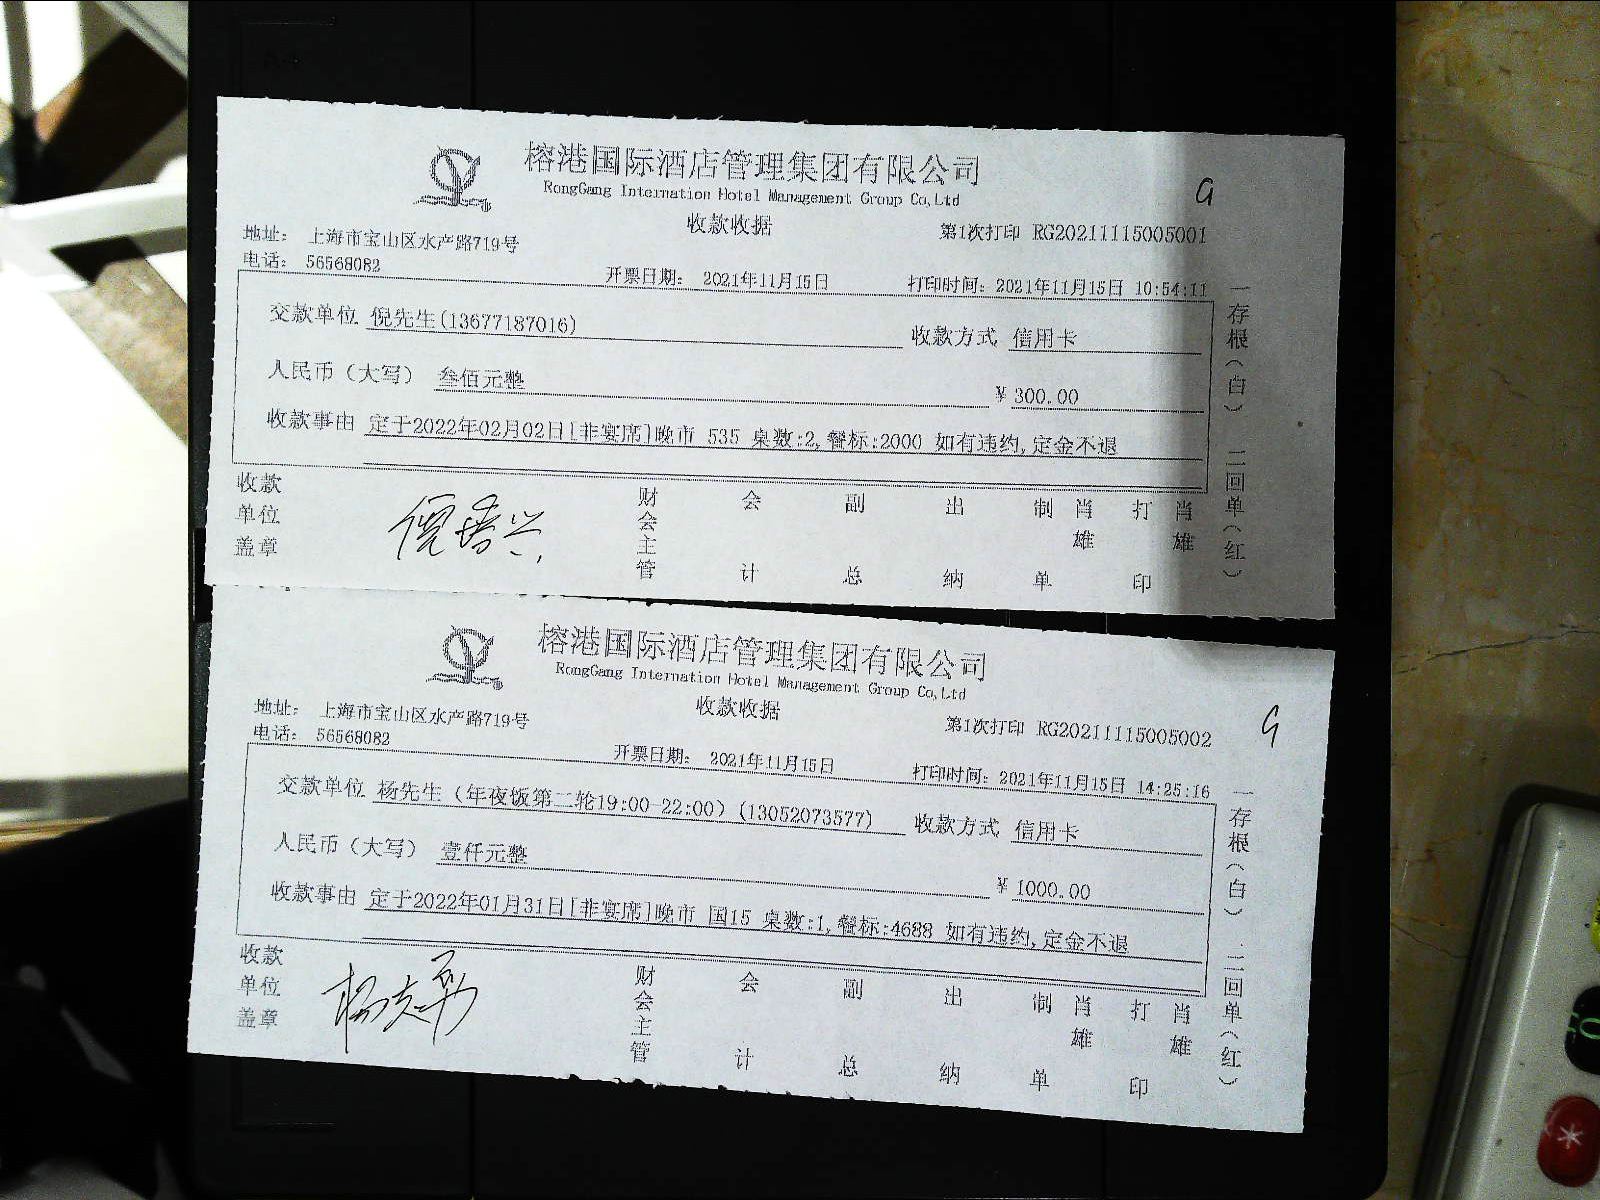 榕港国际酒店管理集团有限公司
RongGang Internation Hotel Management Group Co,Ltd
收款收据
第1次打印 RG20211115005001
地址： 上海市宝山区水产路719号
电话： 56568082
开票日期： 2021年11月15日
打印时间：2021年11月15日 10:54:11
交款单位 倪先生(13677187016)
收款方式 信用卡
人民币（大写） 叁佰元整
¥ 300.00
收款事由 定于2022年02月02日[非宴席]晚市 535 桌数:2,餐标:2000 如有违约,定金不退
一存根（白） 二回单（红）
收款单位盖章
财会主管 会计 副总 出纳 制单 肖雄 打印 肖雄
榕港国际酒店管理集团有限公司
RongGang Internation Hotel Management Group Co,Ltd
收款收据
第1次打印 RG20211115005002
地址： 上海市宝山区水产路719号
电话： 56568082
开票日期： 2021年11月15日
打印时间：2021年11月15日 14:25:16
交款单位 杨先生（年夜饭第二轮19:00-22:00）(13052073577)
收款方式 信用卡
人民币（大写） 壹仟元整
¥ 1000.00
收款事由 定于2022年01月31日[非宴席]晚市 国15 桌数:1,餐标:4688 如有违约,定金不退
一存根（白） 二回单（红）
收款单位盖章
财会主管 会计 副总 出纳 制单 肖雄 打印 肖雄